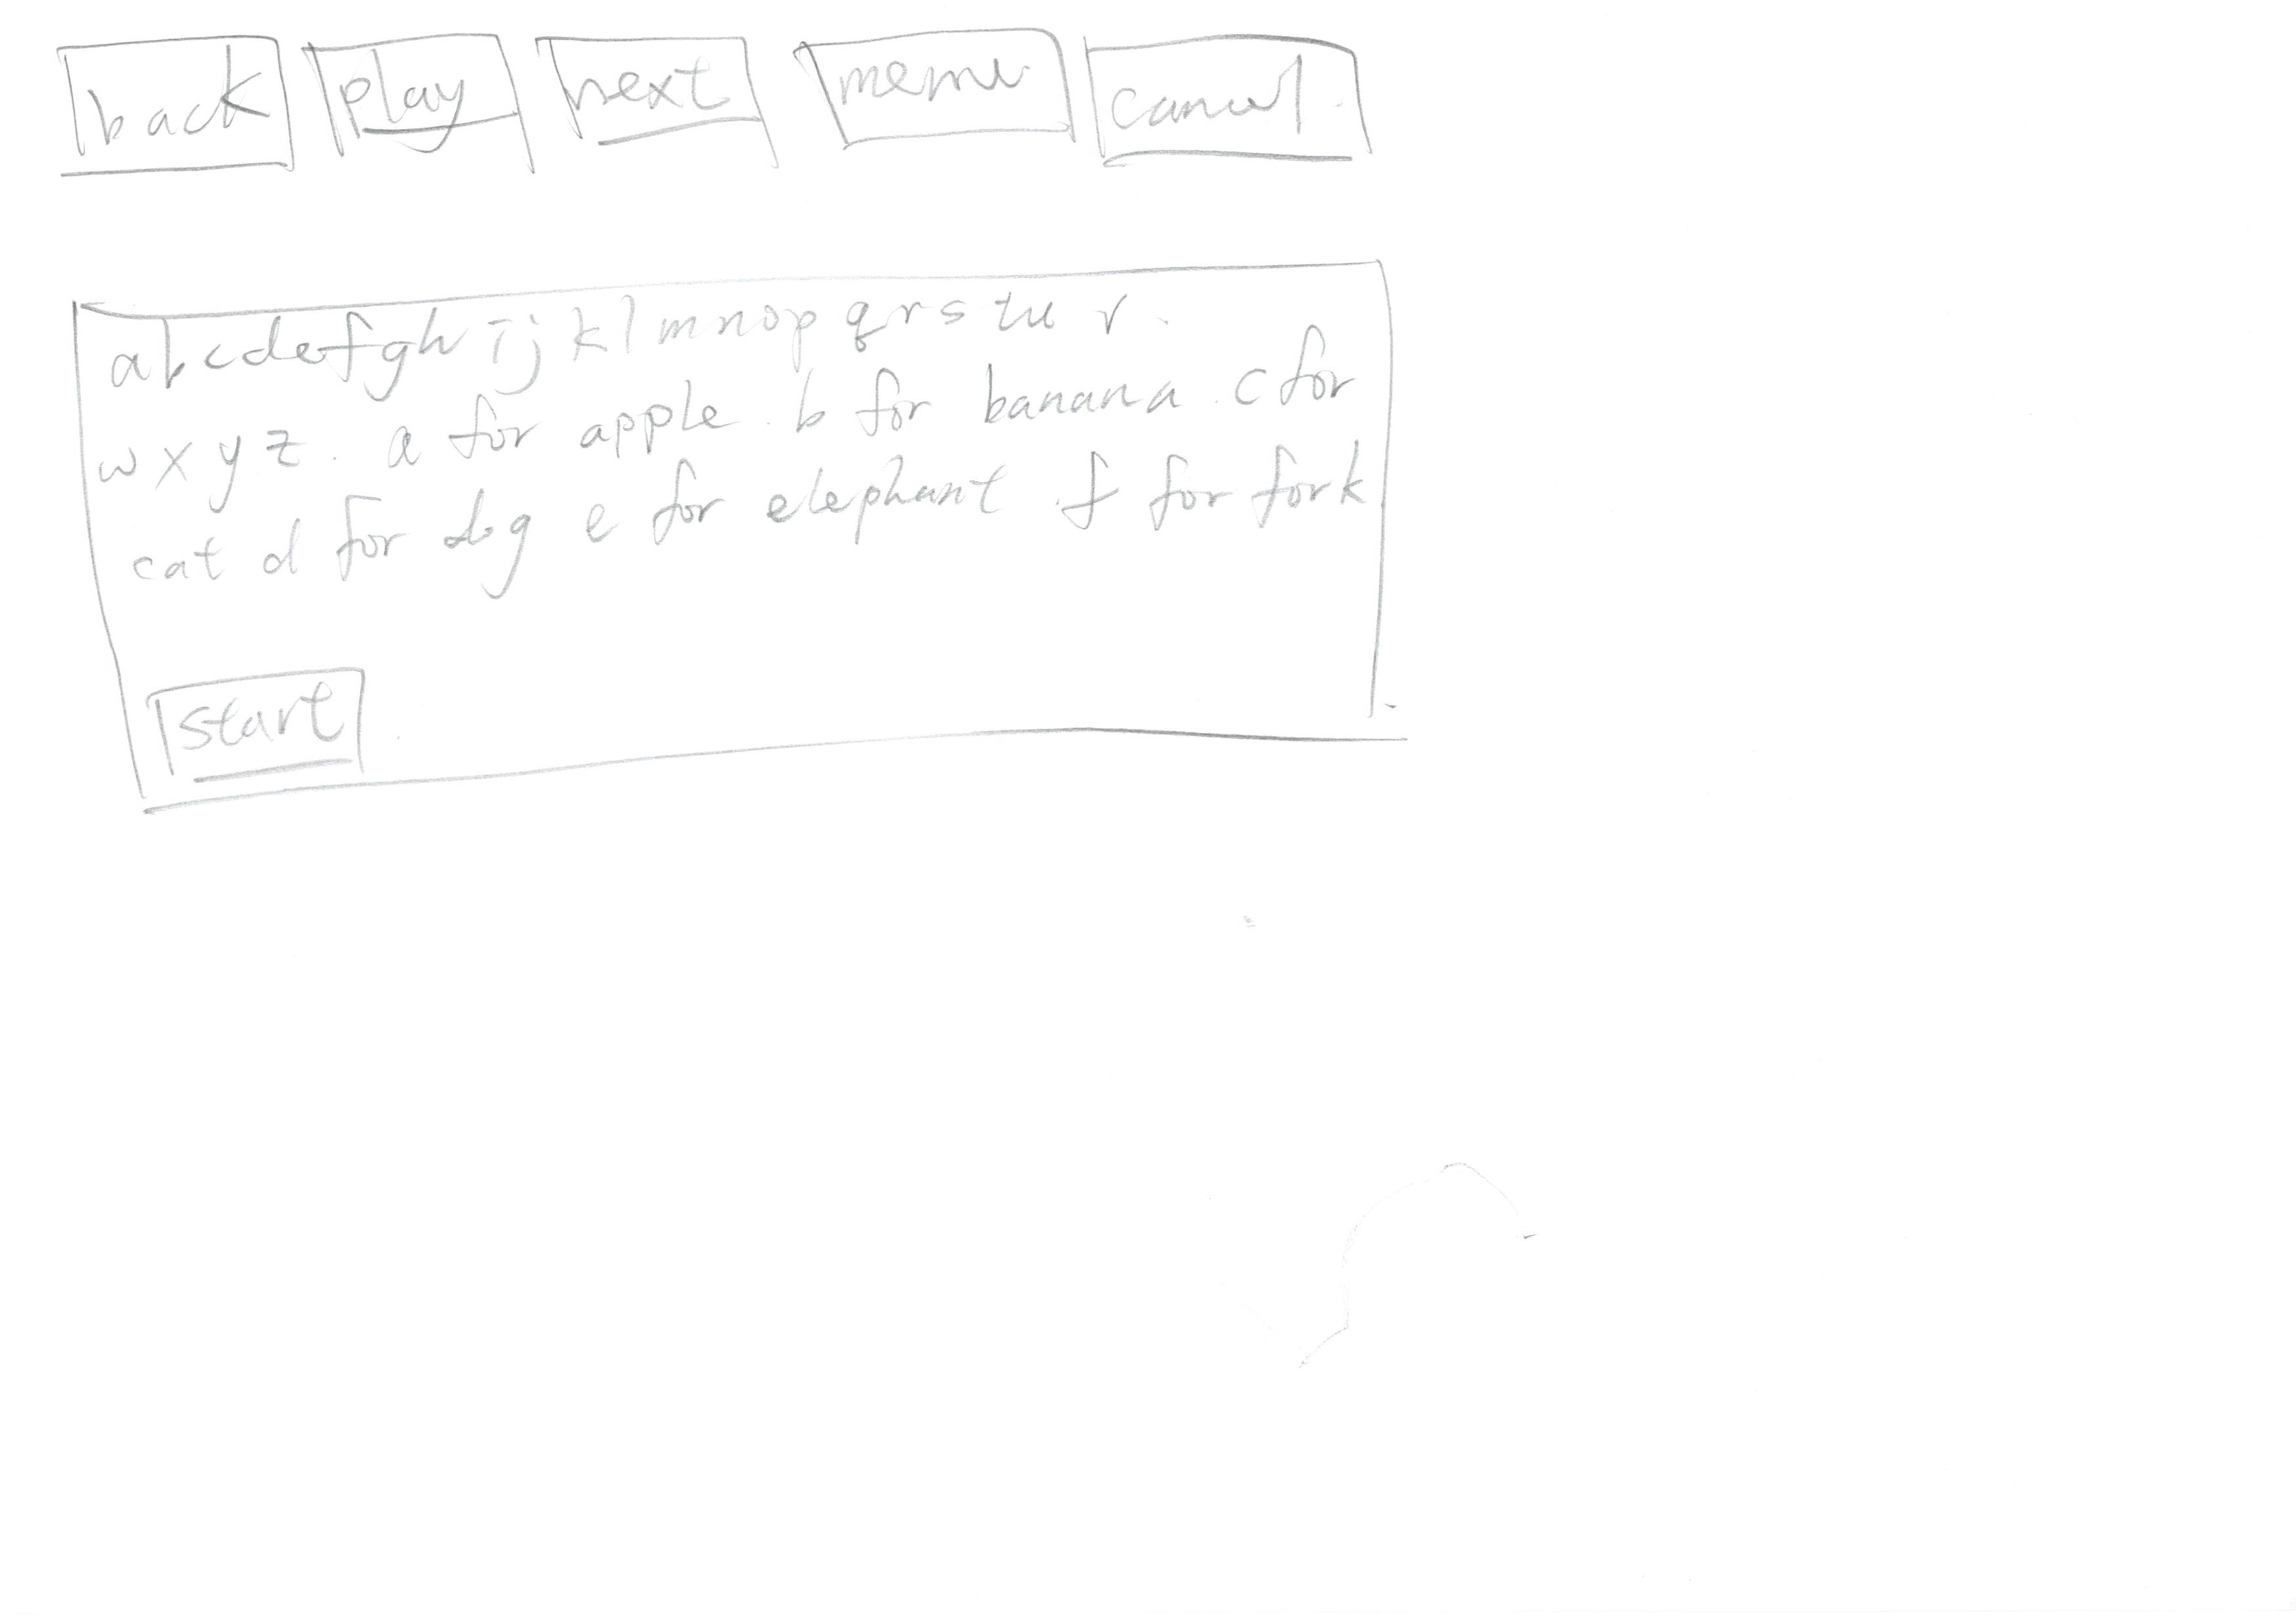 back play next menu cancel
abcdefgh ijklmnop qrstu v.
wxyz. a for apple. b for banana. c for
cat d for dog e for elephant. f for fork
start